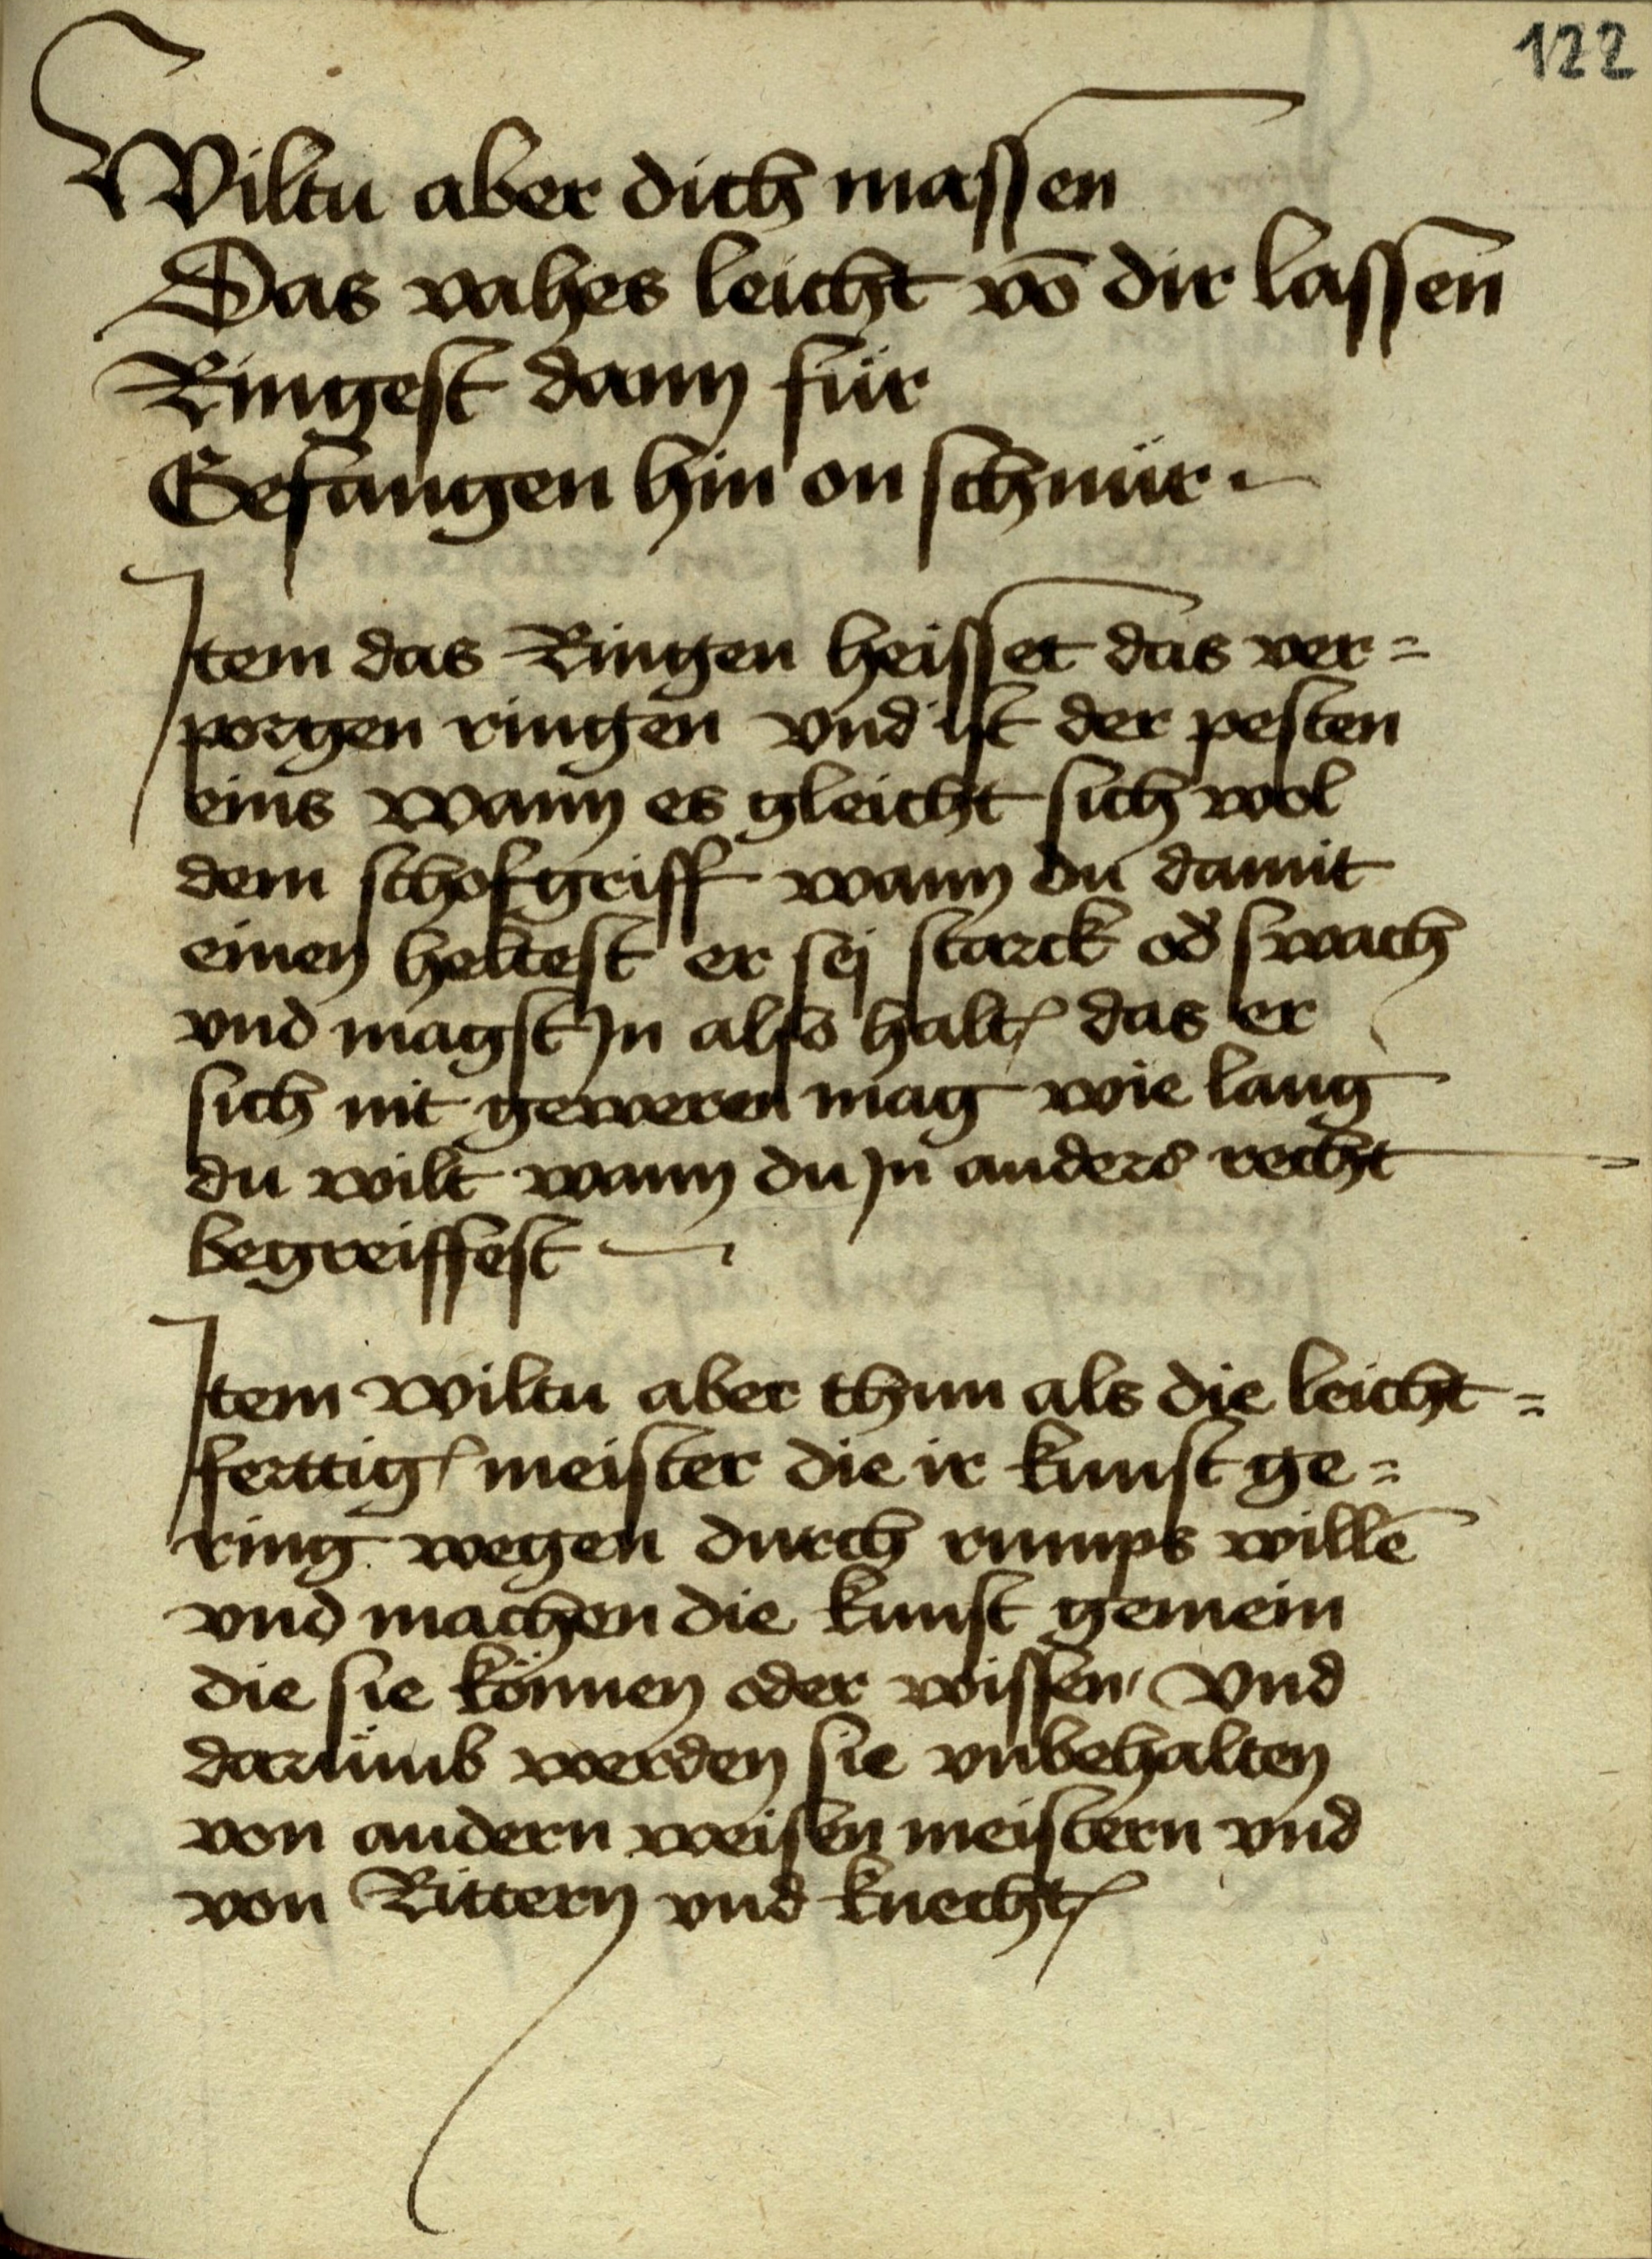 122
Wiltu aber dich massen
Das vahes leicht vō dir lassen
Ringest dann für
Gefangen hin on schnür
Item das Ringen heisset das ver=
porgen ringen vnd ist der pesten
eins wann es gleicht sich wol
dem schofgriff wann du damit
einen heltest er sej starck od swach
vnd magst Jn also halt das er
sich nit geweren mag wie lang
du wilt wann du Jn anders recht
begreiffest
Item wiltu aber thun als die leicht=
ferttig meister die ir kunst ge=
ring wegen durch rumps willē
vnd machen die kunst gemein
die sie können oder wissen Vnd
darümb werden sie vnbehalten
von andern weisen meistern vnd
von Rittern vnd knecht